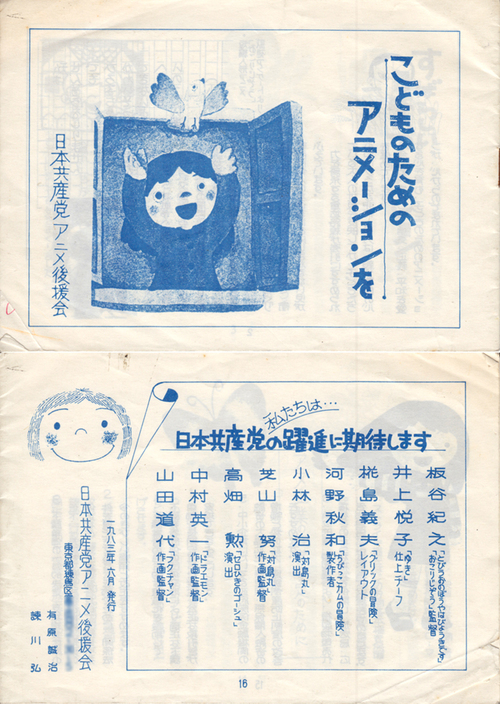 こどものための
アニメーションを
日本共産党アニメ後援会
私たちは…
日本共産党の躍進に期待します
板谷紀之
井上悦子
「ゆき」
仕上チーフ
椛島義夫
「クリックの冒険」
レイアウト
河野秋和
「ちびっこカムの冒険」
製作者
小林 治
「対馬丸」
演出
芝山 努
「対馬丸」
作画監督
高畑 勲
「セロひきのゴーシュ」
演出
中村英一
「ドラエモン」
作画監督
山田道代
「フクチャン」
作画監督
一九八三年六月 発行
日本共産党アニメ後援会
東京都練馬区
有原誠治
諫川 弘
16